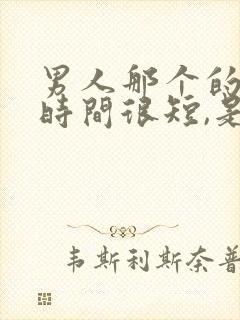 男人那个的
時間很短,是
韦斯利斯奈普